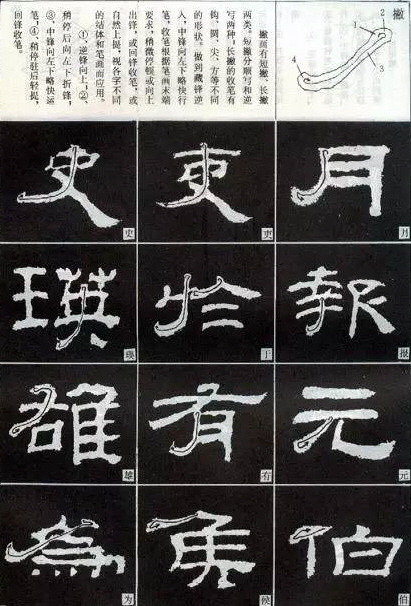 撇
2
1
3
4
撇画有短撇、长撇
两类。短撇分顺写和逆
写两种，长撇的收笔有
钩、圆、尖、方等不同
的形状。做到藏锋逆
入，中锋向左下略快行
笔，收笔根据笔画末端
要求，稍微停顿或向上
出锋，或回锋收笔，或
自然上提，视各字不同
的结体和笔画而应用。
①逆锋向上；②
稍停后向左下折锋，
③中锋向左下略快运
笔，④稍停驻后轻提，
回锋收笔。
月 月
吏 吏
史 史
報 报
於 于
瑛 瑛
元 元
有 有
雄 雄
伯 伯
侯 侯
為 为